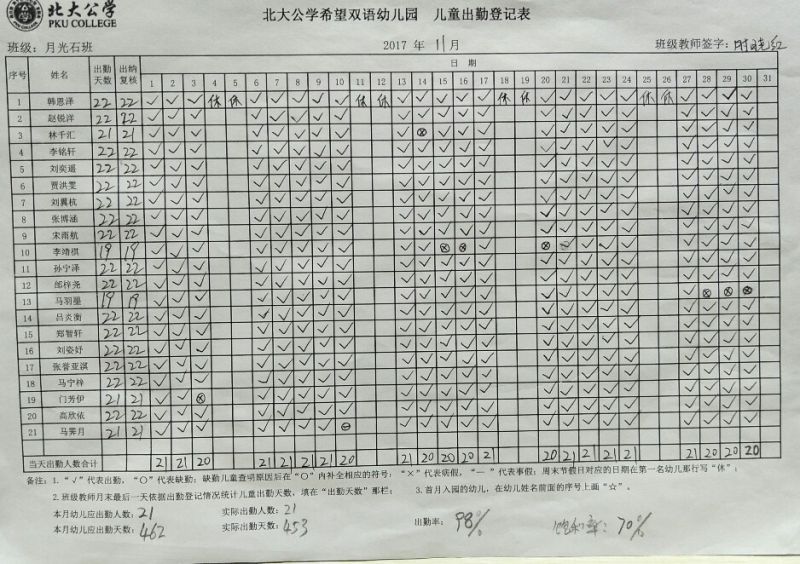 北大公学 北大公学希望双语幼儿园 儿童出勤登记表
PKU COLLEGE
班级：月光石班 2017 年 11 月 班级教师签字：
序号 姓名 出勤天数 出纳复核 日 期
1 2 3 4 5 6 7 8 9 10 11 12 13 14 15 16 17 18 19 20 21 22 23 24 25 26 27 28 29 30 31
1 韩恩泽 22 22 ✓ ✓ ✓ 休 休 ✓ ✓ ✓ ✓ ✓ 休 休 ✓ ✓ ✓ ✓ ✓ 休 休 ✓ ✓ ✓ ✓ ✓ 休 休 ✓ ✓ ✓ ✓
2 赵锐洋 22 22 ✓ ✓ ✓ ✓ ✓ ✓ ✓ ✓ ✓ ✓ ✓ ✓ ✓ ✓ ✓ ✓ ✓ ✓ ✓ ✓ ✓ ✓
3 林千汇 21 21 ✓ ✓ ✓ ✓ ✓ ✓ ✓ ✓ ✓ ⊗ ✓ ✓ ✓ ✓ ✓ ✓ ✓ ✓ ✓ ✓ ✓ ✓
4 李铭轩 22 22 ✓ ✓ ✓ ✓ ✓ ✓ ✓ ✓ ✓ ✓ ✓ ✓ ✓ ✓ ✓ ✓ ✓ ✓ ✓ ✓ ✓ ✓
5 刘奕遥 22 22 ✓ ✓ ✓ ✓ ✓ ✓ ✓ ✓ ✓ ✓ ✓ ✓ ✓ ✓ ✓ ✓ ✓ ✓ ✓ ✓ ✓ ✓
6 贾洪雯 22 22 ✓ ✓ ✓ ✓ ✓ ✓ ✓ ✓ ✓ ✓ ✓ ✓ ✓ ✓ ✓ ✓ ✓ ✓ ✓ ✓ ✓ ✓
7 刘翼杭 22 22 ✓ ✓ ✓ ✓ ✓ ✓ ✓ ✓ ✓ ✓ ✓ ✓ ✓ ✓ ✓ ✓ ✓ ✓ ✓ ✓ ✓ ✓
8 张博涵 22 22 ✓ ✓ ✓ ✓ ✓ ✓ ✓ ✓ ✓ ✓ ✓ ✓ ✓ ✓ ✓ ✓ ✓ ✓ ✓ ✓ ✓ ✓
9 宋雨航 22 22 ✓ ✓ ✓ ✓ ✓ ✓ ✓ ✓ ✓ ✓ ✓ ✓ ✓ ✓ ✓ ✓ ✓ ✓ ✓ ✓ ✓ ✓
10 李靖祺 19 19 ✓ ✓ ✓ ✓ ✓ ✓ ✓ ✓ ✓ ✓ ⊗ ⊗ ✓ ⊗ ✓ ✓ ✓ ✓ ✓ ✓ ✓ ✓
11 孙宁泽 22 22 ✓ ✓ ✓ ✓ ✓ ✓ ✓ ✓ ✓ ✓ ✓ ✓ ✓ ✓ ✓ ✓ ✓ ✓ ✓ ✓ ✓ ✓
12 邰梓尧 22 22 ✓ ✓ ✓ ✓ ✓ ✓ ✓ ✓ ✓ ✓ ✓ ✓ ✓ ✓ ✓ ✓ ✓ ✓ ✓ ✓ ✓ ✓
13 马羽墨 19 19 ✓ ✓ ✓ ✓ ✓ ✓ ✓ ✓ ✓ ✓ ✓ ✓ ✓ ✓ ✓ ✓ ✓ ✓ ✓ ⊗ ⊗ ⊗
14 吕炎衡 22 22 ✓ ✓ ✓ ✓ ✓ ✓ ✓ ✓ ✓ ✓ ✓ ✓ ✓ ✓ ✓ ✓ ✓ ✓ ✓ ✓ ✓ ✓
15 郑智轩 22 22 ✓ ✓ ✓ ✓ ✓ ✓ ✓ ✓ ✓ ✓ ✓ ✓ ✓ ✓ ✓ ✓ ✓ ✓ ✓ ✓ ✓ ✓
16 刘姿妤 22 22 ✓ ✓ ✓ ✓ ✓ ✓ ✓ ✓ ✓ ✓ ✓ ✓ ✓ ✓ ✓ ✓ ✓ ✓ ✓ ✓ ✓ ✓
17 张誉亚淇 22 22 ✓ ✓ ✓ ✓ ✓ ✓ ✓ ✓ ✓ ✓ ✓ ✓ ✓ ✓ ✓ ✓ ✓ ✓ ✓ ✓ ✓ ✓
18 马宁梓 22 22 ✓ ✓ ✓ ✓ ✓ ✓ ✓ ✓ ✓ ✓ ✓ ✓ ✓ ✓ ✓ ✓ ✓ ✓ ✓ ✓ ✓ ✓
19 门芳伊 21 21 ✓ ✓ ⊗ ✓ ✓ ✓ ✓ ✓ ✓ ✓ ✓ ✓ ✓ ✓ ✓ ✓ ✓ ✓ ✓ ✓ ✓ ✓
20 高欣依 22 22 ✓ ✓ ✓ ✓ ✓ ✓ ✓ ✓ ✓ ✓ ✓ ✓ ✓ ✓ ✓ ✓ ✓ ✓ ✓ ✓ ✓ ✓
21 马霁月 21 21 ✓ ✓ ✓ ✓ ✓ ✓ ✓ ⊖ ✓ ✓ ✓ ✓ ✓ ✓ ✓ ✓ ✓ ✓ ✓ ✓ ✓ ✓
当天出勤人数合计 21 21 20 21 21 21 21 20 21 20 20 20 21 20 21 21 21 21 21 20 20 20
备注：1.“✓”代表出勤，“○”代表缺勤；缺勤儿童查明原因后在“○”内补全相应的符号：“×”代表病假，“—”代表事假；周末节假日对应的日期在第一名幼儿那行写“休”；
2.班级教师月末最后一天依据出勤登记情况统计儿童出勤天数，填在“出勤天数”那栏； 3.首月入园的幼儿，在幼儿姓名前面的序号上画“☆”。
本月幼儿应出勤人数：21 实际出勤人数：21
本月幼儿应出勤天数：462 实际出勤天数：453 出勤率：98% 饱和率：70%